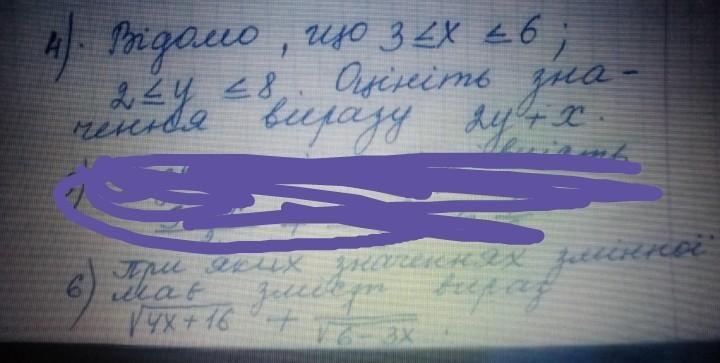 4). Відомо, що 3 ≤ x ≤ 6;
2 ≤ y ≤ 8. Оцініть зна-
чення виразу 2y + x.
6) При яких значеннях змінної
має зміст вираз
√(4x+16) + 1/√(6-3x).